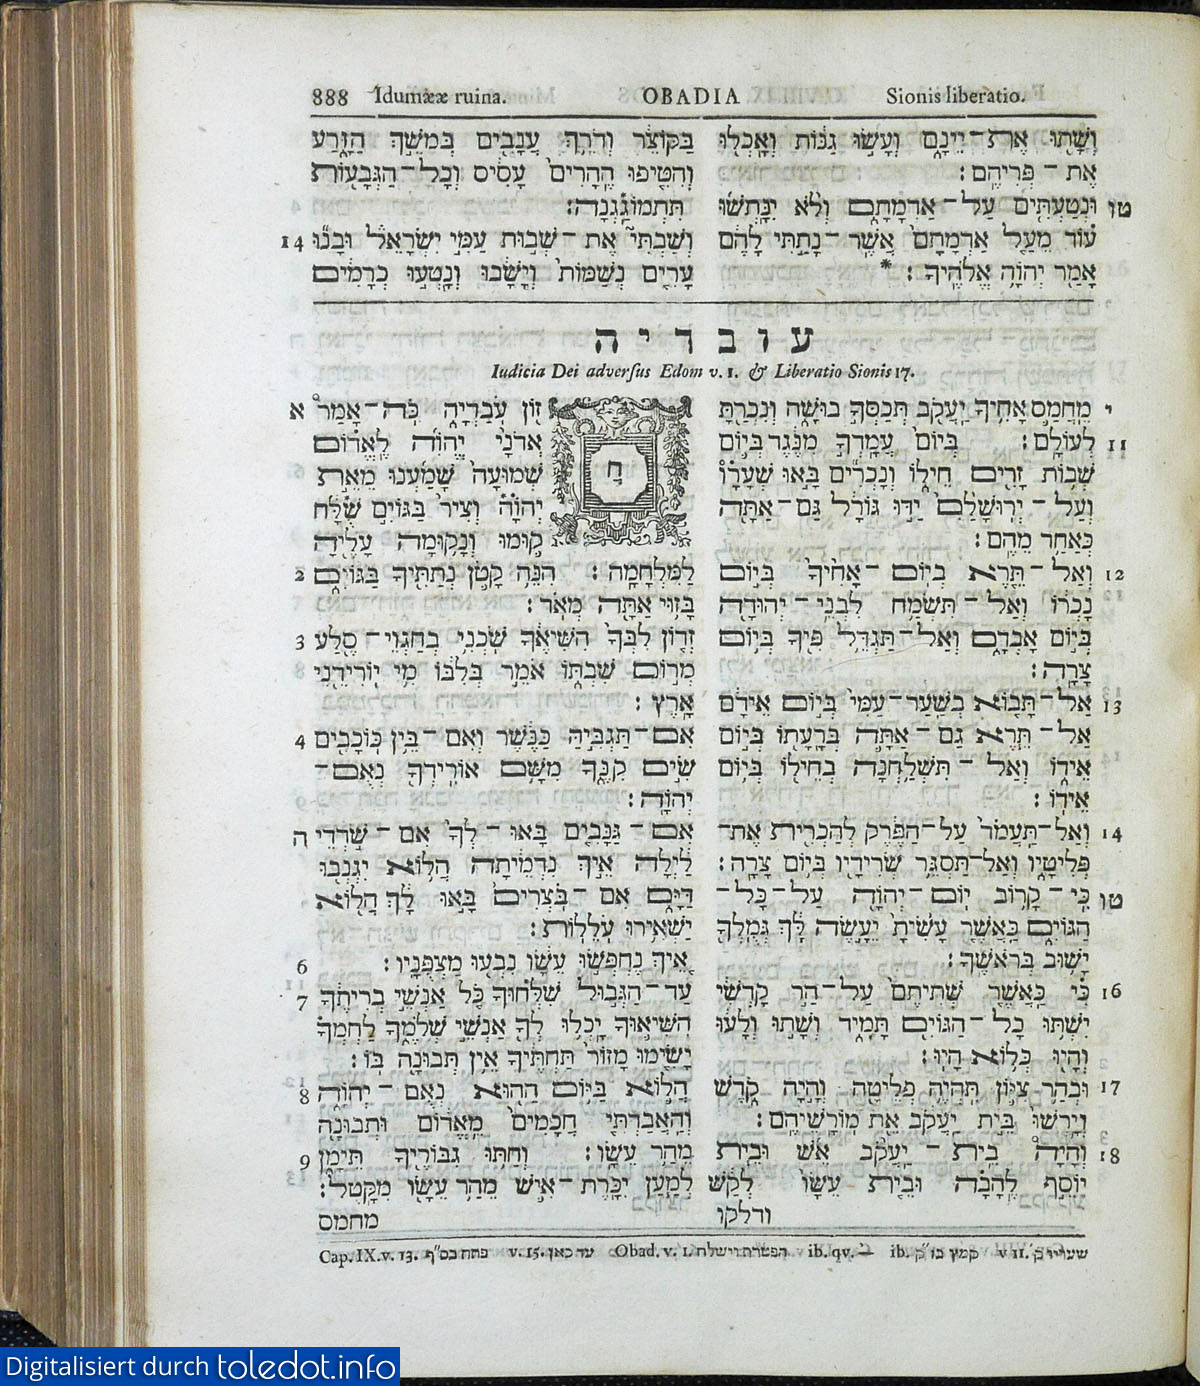 888 Idumææ ruina. OBADIA Sionis liberatio.
בַּקּוֹצֵר וְדֹרֵךְ עֲנָבִים בְּמֹשֵׁךְ הַזָּרַע
וְהִטִּיפוּ הֶהָרִים עָסִיס וְכָל־הַגְּבָעוֹת
תִּתְמוֹגַגְנָה׃
14 וְשַׁבְתִּי אֶת־שְׁבוּת עַמִּי יִשְׂרָאֵל וּבָנוּ
עָרִים נְשַׁמּוֹת וְיָשָׁבוּ וְנָטְעוּ כְרָמִים
וְשָׁתוּ אֶת־יֵינָם וְעָשׂוּ גַנּוֹת וְאָכְלוּ
אֶת־פְּרִיהֶם׃
טו וּנְטַעְתִּים עַל־אַדְמָתָם וְלֹא יִנָּתְשׁוּ
עוֹד מֵעַל אַדְמָתָם אֲשֶׁר־נָתַתִּי לָהֶם
אָמַר יְהוָה אֱלֹהֶיךָ׃ *
עובדיה
Iudicia Dei adversus Edom v. 1. & Liberatio Sionis 17.
א חֲזוֹן עֹבַדְיָה כֹּה־אָמַר
אֲדֹנָי יֱהוִה לֶאֱדוֹם
שְׁמוּעָה שָׁמַעְנוּ מֵאֵת
יְהוָה וְצִיר בַּגּוֹיִם שֻׁלָּח
קוּמוּ וְנָקוּמָה עָלֶיהָ
2 לַמִּלְחָמָה׃ הִנֵּה קָטֹן נְתַתִּיךָ בַּגּוֹיִם
בָּזוּי אַתָּה מְאֹד׃
3 זְדוֹן לִבְּךָ הִשִּׁיאֶךָ שֹׁכְנִי בְחַגְוֵי־סֶלַע
מְרוֹם שִׁבְתּוֹ אֹמֵר בְּלִבּוֹ מִי יוֹרִידֵנִי
אָרֶץ׃
4 אִם־תַּגְבִּיהַּ כַּנֶּשֶׁר וְאִם־בֵּין כּוֹכָבִים
שִׂים קִנֶּךָ מִשָּׁם אוֹרִידְךָ נְאֻם־
יְהוָה׃
ה אִם־גַּנָּבִים בָּאוּ־לְךָ אִם־שֹׁדְדֵי
לַיְלָה אֵיךְ נִדְמֵיתָה הֲלוֹא יִגְנְבוּ
דַּיָּם אִם־בֹּצְרִים בָּאוּ לָךְ הֲלוֹא
יַשְׁאִירוּ עֹלֵלוֹת׃
6 אֵיךְ נֶחְפְּשׂוּ עֵשָׂו נִבְעוּ מַצְפֻּנָיו׃
7 עַד־הַגְּבוּל שִׁלְּחוּךָ כֹּל אַנְשֵׁי בְרִיתֶךָ
הִשִּׁיאוּךָ יָכְלוּ לְךָ אַנְשֵׁי שְׁלֹמֶךָ לַחְמְךָ
יָשִׂימוּ מָזוֹר תַּחְתֶּיךָ אֵין תְּבוּנָה בּוֹ׃
8 הֲלוֹא בַּיּוֹם הַהוּא נְאֻם־יְהוָה
וְהַאֲבַדְתִּי חֲכָמִים מֵאֱדוֹם וּתְבוּנָה
9 מֵהַר עֵשָׂו׃ וְחַתּוּ גִבּוֹרֶיךָ תֵּימָן
לְמַעַן יִכָּרֶת־אִישׁ מֵהַר עֵשָׂו מִקָּטֶל׃
מחמס
י מֵחֲמַס אָחִיךָ יַעֲקֹב תְּכַסְּךָ בוּשָׁה וְנִכְרַתָּ
11 לְעוֹלָם׃ בְּיוֹם עֲמָדְךָ מִנֶּגֶד בְּיוֹם
שְׁבוֹת זָרִים חֵילוֹ וְנָכְרִים בָּאוּ שְׁעָרָו
וְעַל־יְרוּשָׁלִַם יַדּוּ גוֹרָל גַּם־אַתָּה
כְּאַחַד מֵהֶם׃
12 וְאַל־תֵּרֶא בְיוֹם־אָחִיךָ בְּיוֹם
נָכְרוֹ וְאַל־תִּשְׂמַח לִבְנֵי־יְהוּדָה
בְּיוֹם אָבְדָם וְאַל־תַּגְדֵּל פִּיךָ בְּיוֹם
צָרָה׃
13 אַל־תָּבוֹא בְשַׁעַר־עַמִּי בְּיוֹם אֵידָם
אַל־תֵּרֶא גַם־אַתָּה בְּרָעָתוֹ בְּיוֹם
אֵידוֹ וְאַל־תִּשְׁלַחְנָה בְחֵילוֹ בְּיוֹם
אֵידוֹ׃
14 וְאַל־תַּעֲמֹד עַל־הַפֶּרֶק לְהַכְרִית אֶת־
פְּלִיטָיו וְאַל־תַּסְגֵּר שְׂרִידָיו בְּיוֹם צָרָה׃
טו כִּי־קָרוֹב יוֹם־יְהוָה עַל־כָּל־
הַגּוֹיִם כַּאֲשֶׁר עָשִׂיתָ יֵעָשֶׂה לָּךְ גְּמֻלְךָ
יָשׁוּב בְּרֹאשֶׁךָ׃
16 כִּי כַּאֲשֶׁר שְׁתִיתֶם עַל־הַר קָדְשִׁי
יִשְׁתּוּ כָל־הַגּוֹיִם תָּמִיד וְשָׁתוּ וְלָעוּ
וְהָיוּ כְּלוֹא הָיוּ׃
17 וּבְהַר צִיּוֹן תִּהְיֶה פְלֵיטָה וְהָיָה קֹדֶשׁ
וְיָרְשׁוּ בֵּית יַעֲקֹב אֵת מוֹרָשֵׁיהֶם׃
18 וְהָיָה בֵית־יַעֲקֹב אֵשׁ וּבֵית
יוֹסֵף לֶהָבָה וּבֵית עֵשָׂו לְקַשׁ
ודלקו
Cap. IX. v. 13. פתח בס״ף v. 15. עד כאן Obad. v. 1. הפטרת וישלח ib. קמץ בז״ק v 11. שעריו ק׳
Digitalisiert durch toledot.info